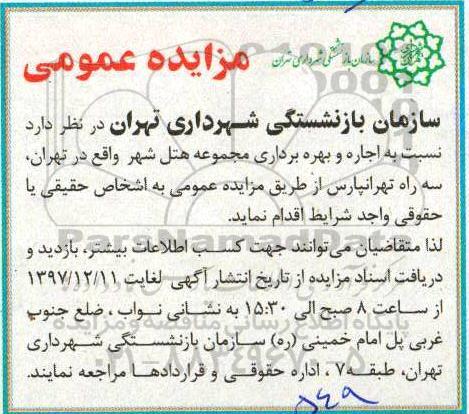 سازمان بازنشستگی شهرداری تهران
مزایده عمومی
سازمان بازنشستگی شهرداری تهران در نظر دارد
نسبت به اجاره و بهره برداری مجموعه هتل شهر واقع در تهران،
سه راه تهرانپارس از طریق مزایده عمومی به اشخاص حقیقی یا
حقوقی واجد شرایط اقدام نماید.
لذا متقاضیان می‌توانند جهت کسب اطلاعات بیشتر، بازدید و
دریافت اسناد مزایده از تاریخ انتشار آگهی لغایت ۱۳۹۷/۱۲/۱۱
از ساعت ۸ صبح الی ۱۵:۳۰ به نشانی نواب ، ضلع جنوب
غربی پل امام خمینی (ره) سازمان بازنشستگی شهرداری
تهران، طبقه۷ ، اداره حقوقی و قراردادها مراجعه نمایند.
ParsNamadData
پایگاه اطلاع رسانی مناقصه و مزایده